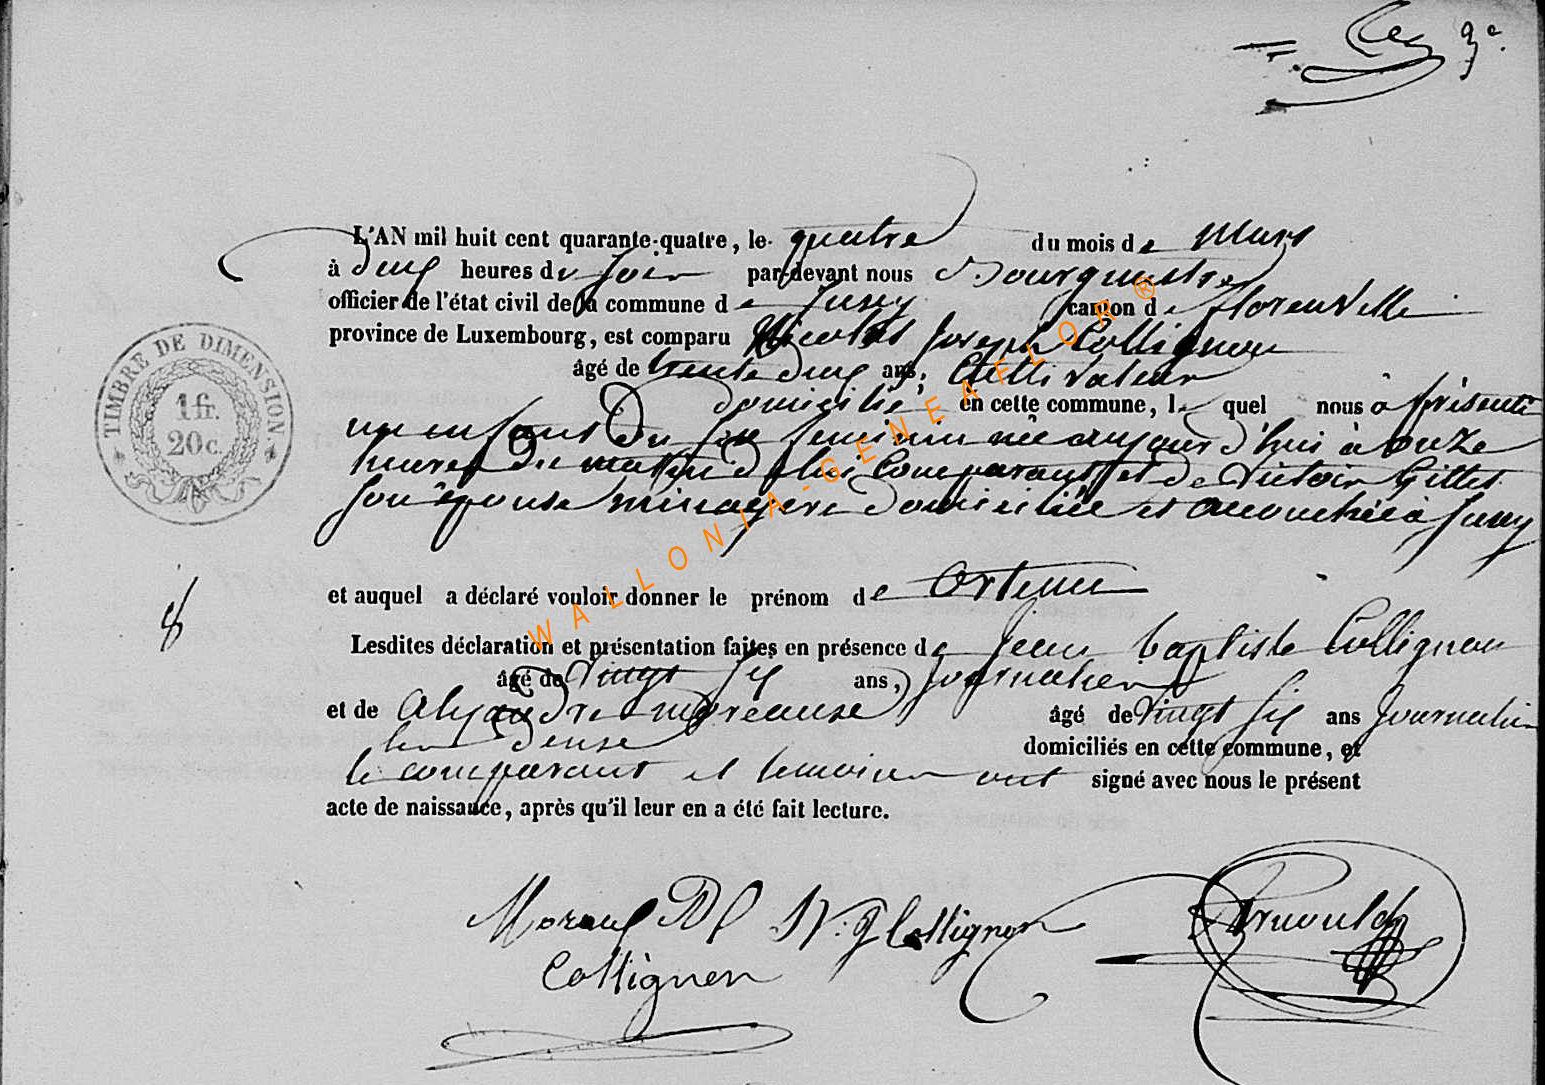 L'AN mil huit cent quarante-quatre, le quatre du mois de Mars
à deux heures du soir par-devant nous Bourguemestre
officier de l'état civil de la commune de Jusny canton de florenville
province de Luxembourg, est comparu Nicolas Joseph Collignon
âgé de trente deux ans, Cultivateur
domicilié en cette commune, le quel nous a présenté
un enfant du sexe feminin née aujourd'hui à onze
heures du matin de lui Comparant et de Victoir Gillet
son épouse menagere domiciliée et acouchée à Jusny
et auquel a déclaré vouloir donner le prénom de Ortence
Lesdites déclaration et présentation faites en présence de Jean baptiste Collignon
âgé de vingt six ans, Journalier
et de Alexandre moreause âgé de vingt six ans Journalier
domiciliés en cette commune, et
le comparant et temoins ont signé avec nous le présent
acte de naissance, après qu'il leur en a été fait lecture.
TIMBRE DE DIMENSION
1 fr.
20 c.
8
WALLONIA-GENEAFLOR®
Moreaux N. J Collignon
Collignon